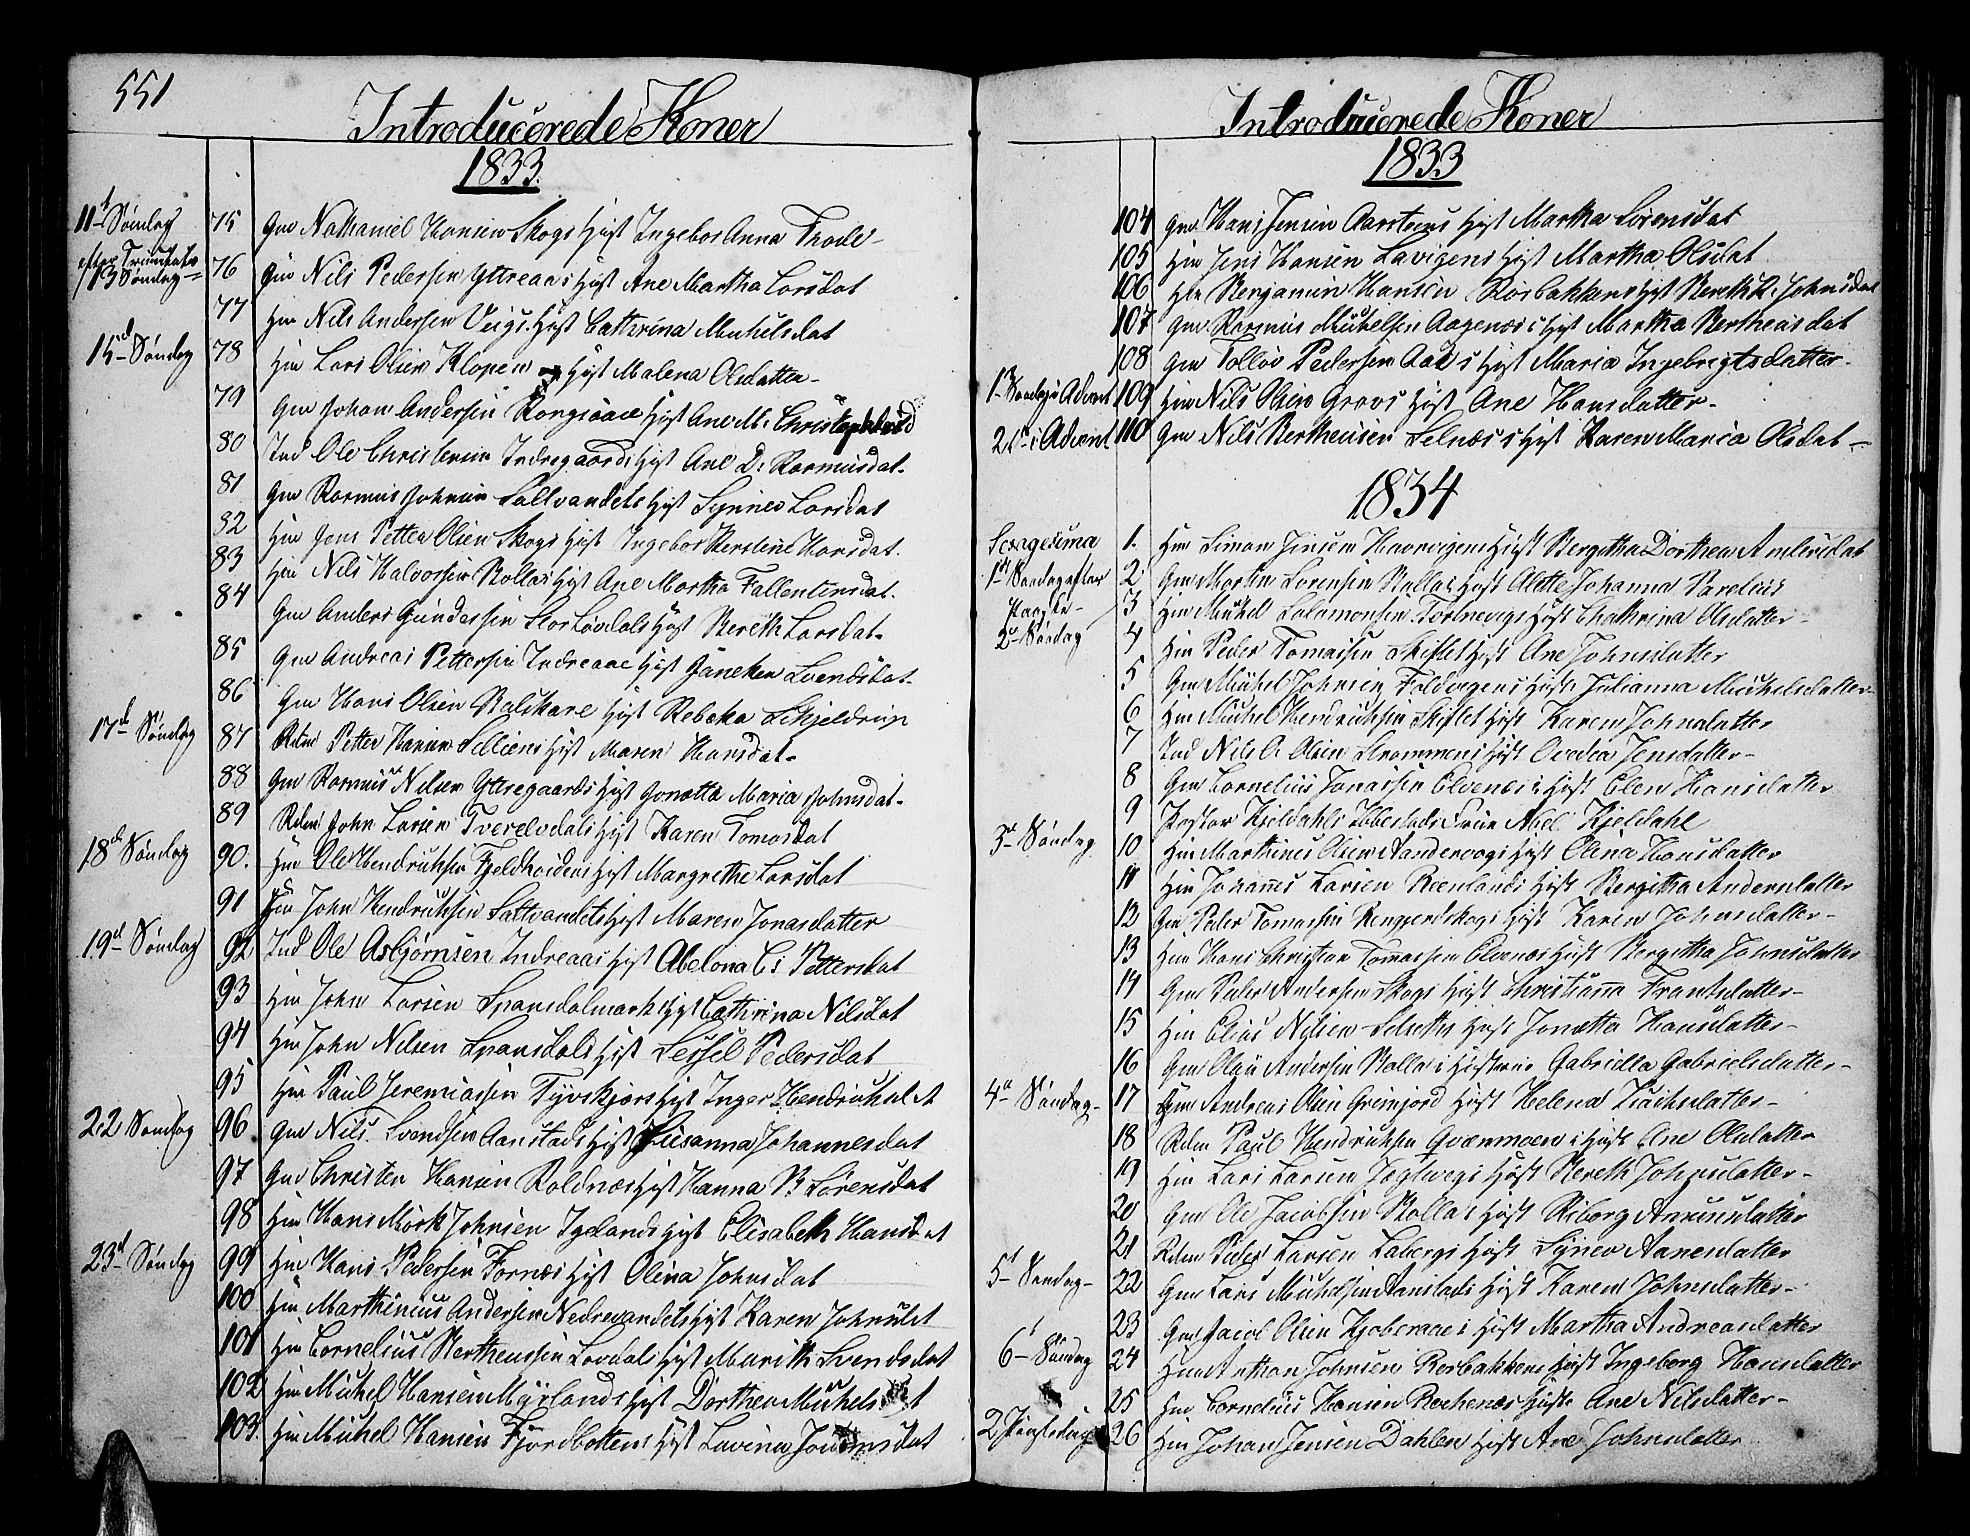 551
Introducerede Koner
1833.
11te Søndag efter Trinitatis 75 Gm Nathaniel Hansen Skogs Høst Ingebor Anna Frode
13 Søndag 76 Gm Nils Pedersen Yttreaaes Høst Ane Martha Larsdat
77 Hm Nils Andersen Veigs Høst Cathrina Michelsdat
15d Søndag 78 Hm Lars Olsen Klopen Høst Malena Olsdatter
79 Gm Johan Andersen Høst Ane M.
80 Ind Ole Christensen Indregaards Høst Ane D. Rasmusdat
81 Gm Rasmus Johnsen Saltvandets Høst Synnev Larsdat
82 Hm Jens Petter Olsen Skogs Høst Ingebor Kerstine Hansdat.
83 Hm Nils Halvorsen Rollas Høst Ane Martha Fallentinsdat.
84 Gm Anders Gundersen Storløvdals Høst Bereth Larsdat
85 Gm Andreas Pettersen Indreaae Høst Janeken Svendsdat.
86 Gm Hans Olsen Høst Rebeka Schjeldrup
17d Søndag 87 Rdm Petter Hansen Selliens Høst Maren Hansdat
88 Gm Rasmus Nilsen Yttregaards Høst Jonetta Maria Johnsdat.
89 Rdm John Larsen Tverelvdals Høst Karen Tomasdat
18d Søndag 90. Hm Ole Hendriksen Fjeldheidens Høst Margrethe Larsdat
91 Hm John Hendriksen Saltvandets Høst Maren Jonasdatter
19d Søndag 92 Ind Ole Asbjørnsen Indreaas Høst Abelona C. Pettersdat
93 Hm John Larsen Spansdalmark Høst Cathrina Nilsdat
94 Hm John Nilsen Spansdals Høst Sessel Pedersdat
95 Hm Paul Jeremiassen Tyvskjærs Høst Inger Hendriksdat
22 Søndag 96 Gm Nils Svendsen Aanstads Høst Susanna Johannesdat
97 Gm Christen Hansen Roldnæs Høst Hanna B. Sørensdat
98 Hm Hans Mørk Johnsen Igelands Høst Elisabeth Hansdat
23d Søndag 99 Hm Hans Pedersen Fornæs Høst Olina Johnsdat
100 Hm Marthinius Andersen Nedrevandets Høst Karen Johnsdat
101 Hm Cornelius Bertheussen Lovdals Høst Marith Svendsdat
102 Hm Michel Hansen Myrlands Høst Dorthea Michelsdat
103. Hm Michel Hansen Fjordbottens Høst Lavina Jonamsdat
Introducerede Koner
1833
104 Gm Hans Jensen Aarsteens Høst Martha Sørensdat
105 Hm Jens Hansen Lavigens Høst Martha Olsdat
106 Hm Benjamin Hansen Rosbakkens Høst Bereth K. Johnsdat
107 Gm Rasmus Michelsen Aagenæs Høst Martha Bertheasdat
108 Gm Follov Pedersen Aaes Høst Maria Ingebregtsdatter
1 Søndag i Advent 109 Hm Nils Olsen Gravs Høst Ane Hansdatter
2den i Advent 110 Gm Nils Bertheusen Selnæs Høst Karen Maria Olsdat
1834
Sexagesima 1. Hm Simon Jensen Havnvigens Høst Bergitha Dorthea Andersdat
1st Søndag efter Paaske 2 Gm Martin Sørensen Rollas Høst Alette Johanna Parelius
3 Hm Michel Salamonsen Høst Chathrina Olsdatter
2. Søndag 4 Hm Peder Tomassen Skiflet Høst Ane Johnsdatter
5 Gm Michel Johnsen Foldvigens Høst Julianna Michelsdatter
6 Hm Michel Hendriksen Skiflet Høst Karen Johnsdatter
7 Ind Nils O. Olsen Strommens Høst Ovedea Jensdatter
8 Gm Cornelius Jonassen Elvenes Høst Elen Hansdatter
9 Pastor Kjeldahls Ibbestads Frue Abel Kjeldahl
3a Søndag 10 Hm Marthines Olsen Sandervogs Høst Olina Hansdatter
11 Hm Johannes Larsen Reenlands Høst Bergitha Andersdatter
12 Gm Peder Tomassen Høst Karen Johnsdatter
13 Hm Hans Christian Tomassen Elvenæs Høst Bergitha Johnsdatter
14 Gm Peder Andersen Skogs Høst Christianna Frantsdatter
15 Hm Elias Nilsen Høst Jonetta Hansdatter
16 Gm Olaus Andersen Rollas Høstrue Gabriella Gabrielsdatter
4a Søndag 17 Hm Andreas Olsen Greinjord Høst Helena Isachsdatter
18 Rdm Paul Hendriksen Qvænmoen Høst Ane Olsdatter
19 Hm Lars Larsen Høst Bereth Johnsdatter
20 Gm Ole Jacobsen Rollas Høst Riborg Amundsdatter
21 Rdm Peder Larsen Labergs Høst Synev Aanensdatter
5d Søndag 22 Gm Lars Michelsen Aanstads Høst Karen Johnsdatter
23 Gm Jacob Olsen Høst Martha Andreasdatter
6d Søndag 24 Hm Anthon Johnsen Rosbakkens Høst Ingeborg Hansdatter
25 Hm Cornelius Hansen Høst Ane Nilsdatter
2 Pingstdag 26 Hm Johan Jensen Dahlen Høst Ane Johnsdatter